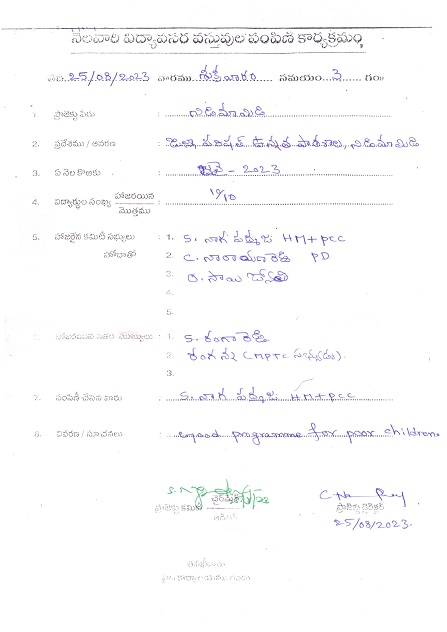 నెలవారి విద్యావసర వస్తువుల పంపిణీ కార్యక్రమం
తేది 25/08/2023 వారము శుక్రవారం సమయం 3 గం॥
1. ప్రాజెక్టు పేరు : నిడిమామిడి
2. ప్రదేశము / ఆవరణ : జిల్లా పరిషత్ ఉన్నత పాఠశాల, నిడిమామిడి
3. ఏ నెల కొఱకు : జూలై - 2023
4. విద్యార్థుల సంఖ్య హాజరయిన / మొత్తము : 10/10
5. హాజరైన కమిటీ సభ్యులు : 1. S. నాగ పద్మజ HM+PCC
హోదాతో 2. C. నారాయణ రెడ్డి PD
3. D. సాయి జ్యోతి
4.
5.
హాజరయిన ఇతర ముఖ్యులు : 1. S. రంగారెడ్డి
2. (MPTC సభ్యుడు).
3.
7. పంపిణీ చేసిన వారు : S. నాగ పద్మజ HM+PCC
8. వివరణ / సూచనలు : Good programme for poor children.
ప్రాజెక్టు కమిటీ ఛైర్మన్
ప్రాజెక్టు డైరెక్టర్
25/08/2023.